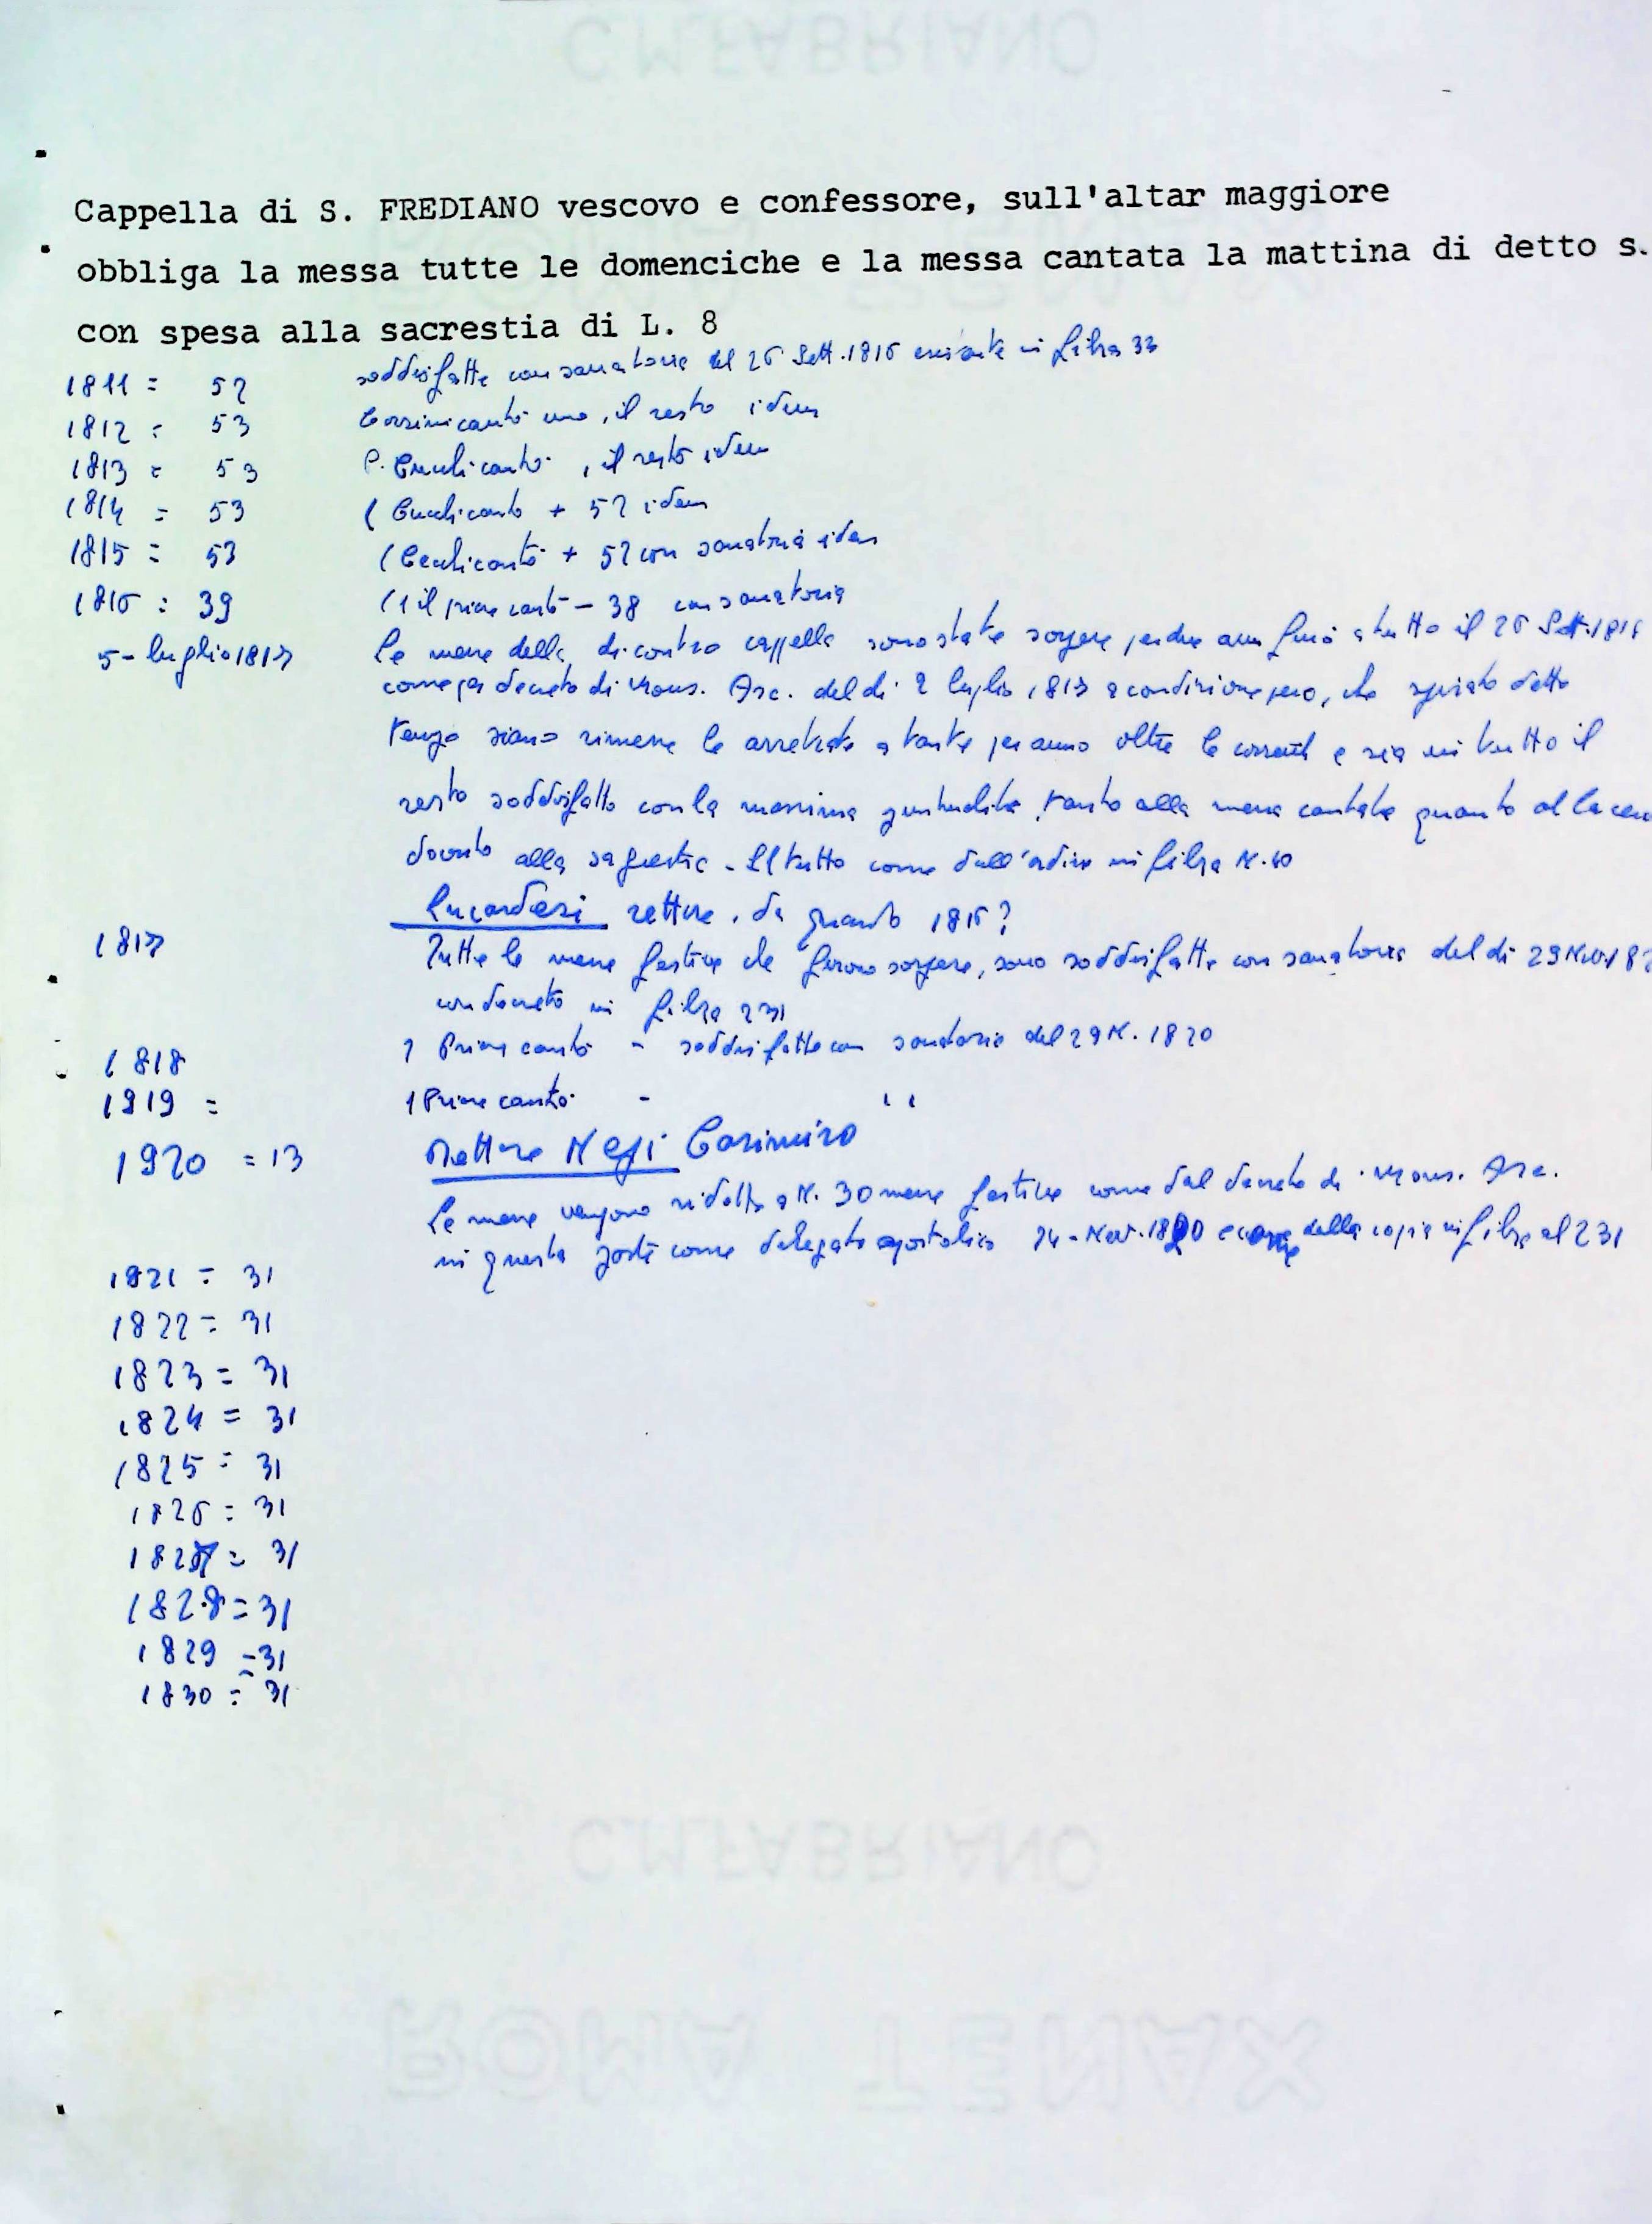 C.M.FABRIANO
Cappella di S. FREDIANO vescovo e confessore, sull'altar maggiore
obbliga la messa tutte le domenciche e la messa cantata la mattina di detto s.
con spesa alla sacrestia di L. 8
1811 = 52 soddisfatte con sanatoria del 26 Sett. 1816 esistente in filza 33
1812 = 53 Corsini cantò una, il resto idem
1813 = 53 P. cantò, il resto idem
1814 = 53 cantò + 52 idem
1815 = 53 cantò + 52 con sanatoria idem
1816 = 39 1 il cantò - 38 con sanatoria
5 - luglio 1817 Le messe della di contro cappella sono state sospese per due anni fino a tutto il 26 Sett. 181
come per decreto di Mons. Arc. del dì 2 luglio 1817 a condizione però, che spirato detto
tempo siano rimesse le arretrate a tante per anno oltre le correnti e sia in tutto il
resto soddisfatto con la massima puntualità, tanto alla messa cantata quanto al
dovuto alla sagrestia - Il tutto come dall'ordine in filza N. 40
Lucardesi rettore, da quando 1816?
1817 Tutte le messe festive che furono sospese, sono soddisfatte con sanatoria del dì 29 Nov. 182
con decreto in filza 231
1818 1 cantò - soddisfatte con sanatoria del 29 N. 1820
1919 = 1 cantò - " "
1920 = 13 Rettore Negi Casimiro
Le messe vengono ridotte a N. 30 messe festive come dal decreto di Mons. Arc.
in questa parte come delegato apostolico 24 - Nov. 1820 e come della copia in filza al 231
1821 = 31
1822 = 31
1823 = 31
1824 = 31
1825 = 31
1826 = 31
1827 = 31
1828 = 31
1829 = 31
1830 = 31
C.M.FABRIANO
ROMA TENAX